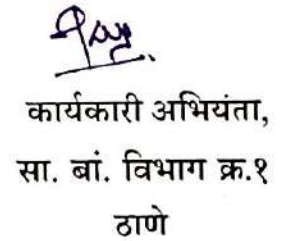 कार्यकारी अभियंता,
सा. बां. विभाग क्र.१
ठाणे